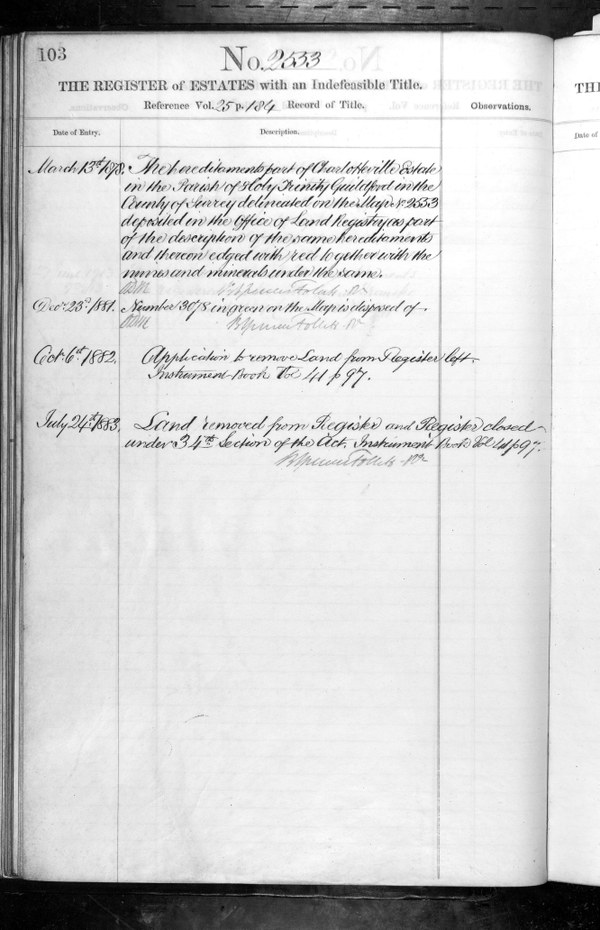 103
No. 2533
THE REGISTER of ESTATES with an Indefeasible Title.
Reference Vol. 25 p. 184 Record of Title. Observations.
Date of Entry. Description.
March 13th 1878. The hereditaments part of Charlotteville Estate
in the Parish of Holy Trinity Guildford in the
County of Surrey delineated on the Map No 2533
deposited in the Office of Land Registry as part
of the description of the same hereditaments
and thereon edged with red together with the
mines and minerals under the same.
Decr 23d 1881. Number 3078 in green on the Map is disposed of.
Oct 6th 1882. Application to remove Land from Register left.
Instrument Book Vol 41 p 97.
July 24th 1883. Land removed from Register and Register closed
under 34th Section of the Act. Instrument Book Vol 41 p 97.
TH
Date of